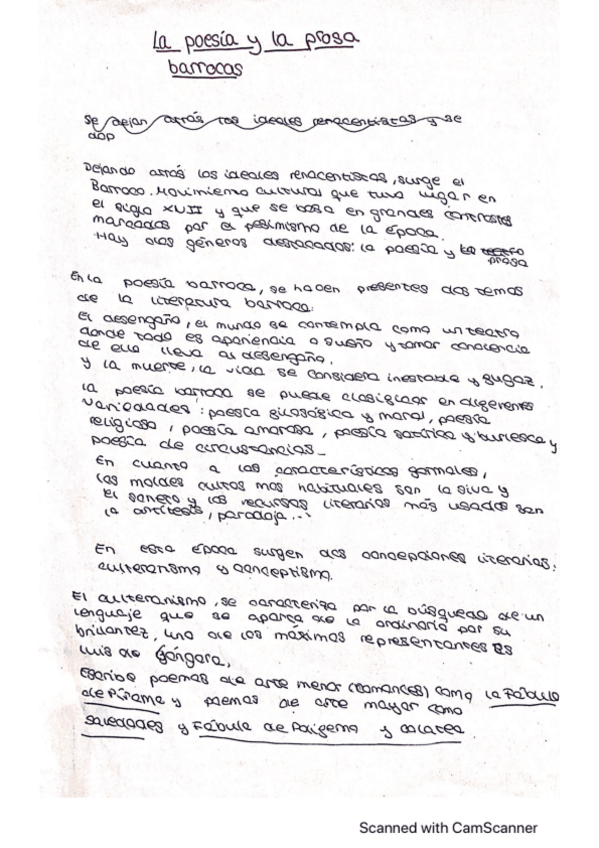 La poesía y la prosa
barrocas
Se dejan atrás los ideales renacentistas y se
dop
Dejando atrás los ideales renacentistas, surge el
Barroco. Movimiento cultural que tuvo lugar en
el siglo XVII y que se basa en grandes contrastes
marcados por el pesimismo de la época.
Hay dos géneros destacados: la poesía y la teatro
prosa
En la poesía barroca, se hacen presentes dos temas
de la literatura barroca:
El desengaño, el mundo se contempla como un teatro
donde todo es apariencia o sueño y tomar conciencia
de ello lleva al desengaño.
y la muerte, la vida se considera inestable y fugaz.
La poesía barroca se puede clasificar en diferentes
variedades: poesía filosófica y moral, poesía
religiosa, poesía amorosa, poesía satírica y burlesca y
poesía de circustancias.
En cuanto a las características formales,
los moldes cultos mas habituales son la silva y
el soneto y los recursos literarios más usados son
la antítesis, paradoja...
En esta época surgen dos concepciones literarias:
culteranismo y conceptismo.
El culteranismo, se caracteriza por la búsqueda de un
lenguaje que se aparta de lo ordinario por su
brillantez, uno de los máximos representantes es
Luis de Góngora,
Escribe poemas de arte menor (romances) como La Fábula
de Píramo y poemas de arte mayor como
Soledades y Fábula de Polifemo y Galatea.
Scanned with CamScanner